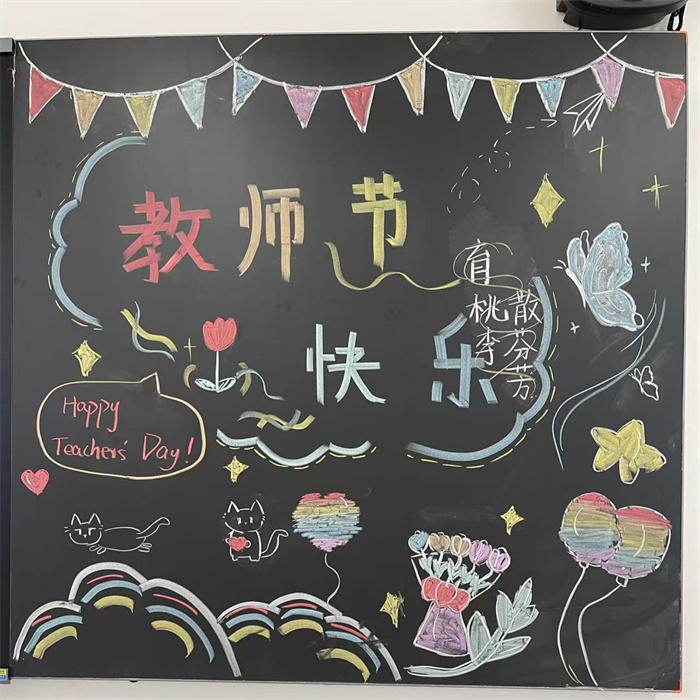 教师节
快乐
育
桃李
散芬芳
Happy
Teachers' Day!